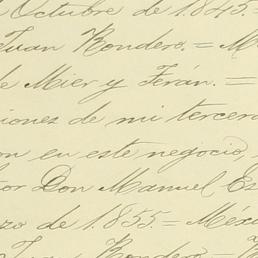 Octubre de 1845.=
Juan Rondero.= M
de Mier y Terán. =
iones de mi tercera
on en este negocio,
tor Don Manuel Es
zo de 1855.= Méxi
Juan Rondero =